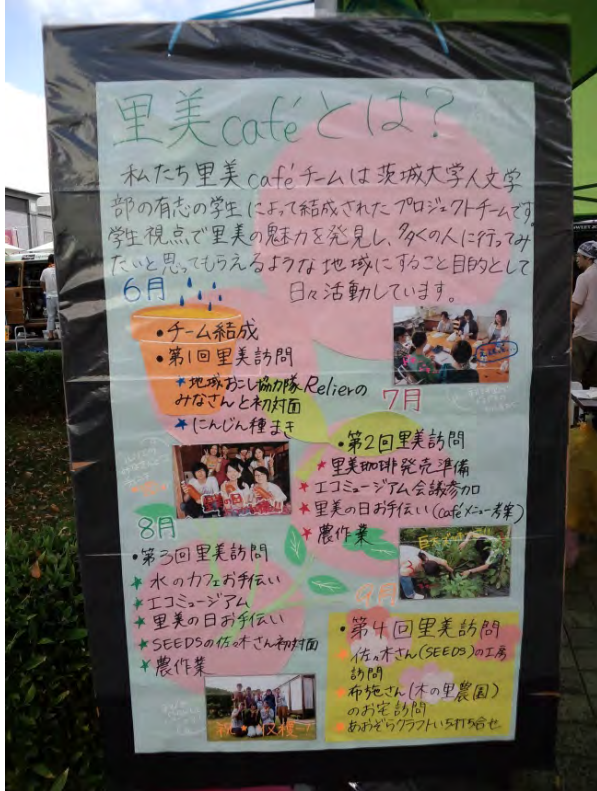 里美caféとは?
私たち里美caféチームは茨城大学人文学
部の有志の学生によって結成されたプロジェクトチームです。
学生視点で里美の魅力を発見し、多くの人に行ってみ
たいと思ってもらえるような地域にすること目的として
日々活動しています。
6月
・チーム結成
・第1回里美訪問
★地域おこし協力隊Relierの
みなさんと初対面
★にんじん種まき
7月
・第2回里美訪問
★里美珈琲発売準備
★エコミュージアム会議参加
★里美の日お手伝い(caféメニュー考案)
★農作業
8月
・第3回里美訪問
★水のカフェお手伝い
★エコミュージアム
★里美の日お手伝い
★SEEDSの佐々木さん初対面
★農作業
9月
・第4回里美訪問
★佐々木さん(SEEDS)の工房
訪問
★布施さん(木の里農園)
のお宅訪問
★あおぞらクラフトいち打ち合せ